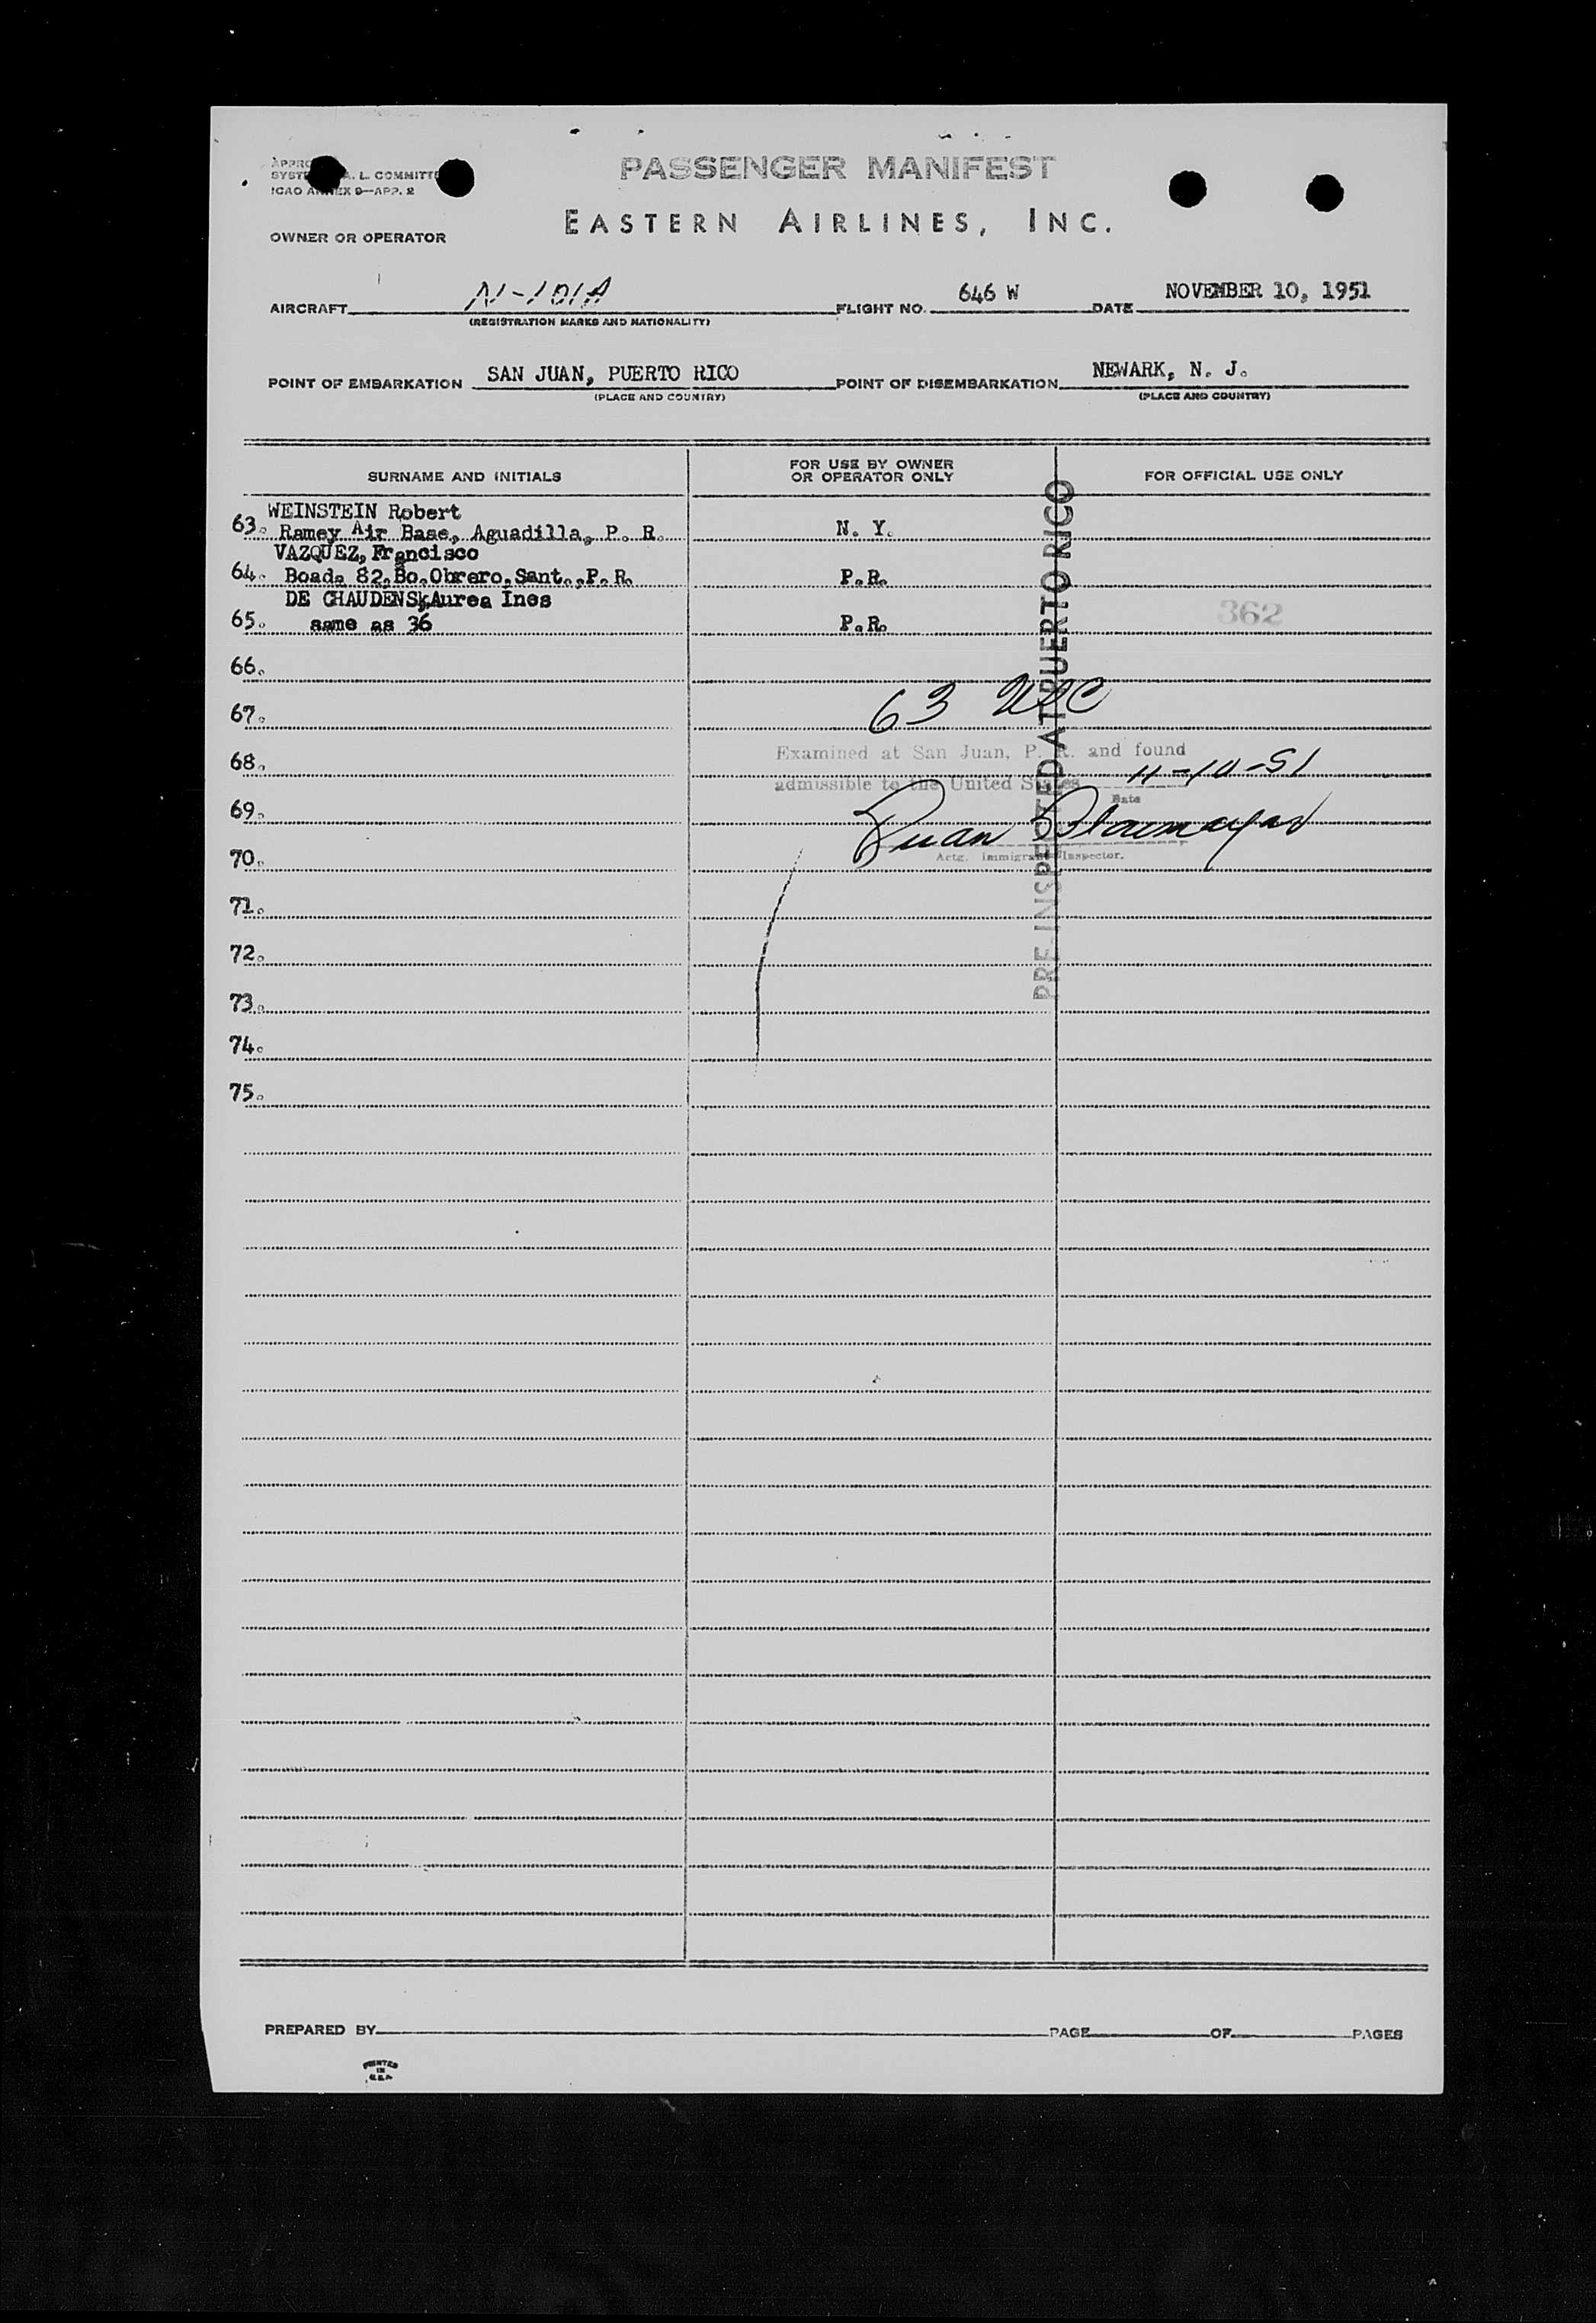 PASSENGER MANIFEST
A. L. COMMITTE
ICAO ANNEX 9—APP. 2
EASTERN AIRLINES, INC.
OWNER OR OPERATOR
AIRCRAFT N-101A FLIGHT NO. 646 W DATE NOVEMBER 10, 1951
(REGISTRATION MARKS AND NATIONALITY)
POINT OF EMBARKATION SAN JUAN, PUERTO RICO POINT OF DISEMBARKATION NEWARK, N. J.
(PLACE AND COUNTRY) (PLACE AND COUNTRY)
SURNAME AND INITIALS FOR USE BY OWNER OR OPERATOR ONLY FOR OFFICIAL USE ONLY
WEINSTEIN Robert
63. Ramey Air Base, Aguadilla, P. R. N. Y.
VAZQUEZ, Francisco
64. Boada 82, Bo. Obrero, Sant., P. R. P.R.
DE CHAUDENS, Aurea Ines
65. same as 36 P.R. 362
66.
67. 63 USC
Examined at San Juan, P. R. and found
68. 11-10-51
admissible to the United States
Date
69. Juan
70. Actg. Immigrant Inspector.
71.
72.
73.
74.
75.
PRE-INSPECTED AT PUERTO RICO
PREPARED BY PAGE OF PAGES
PRINTED
IN
U.S.A.